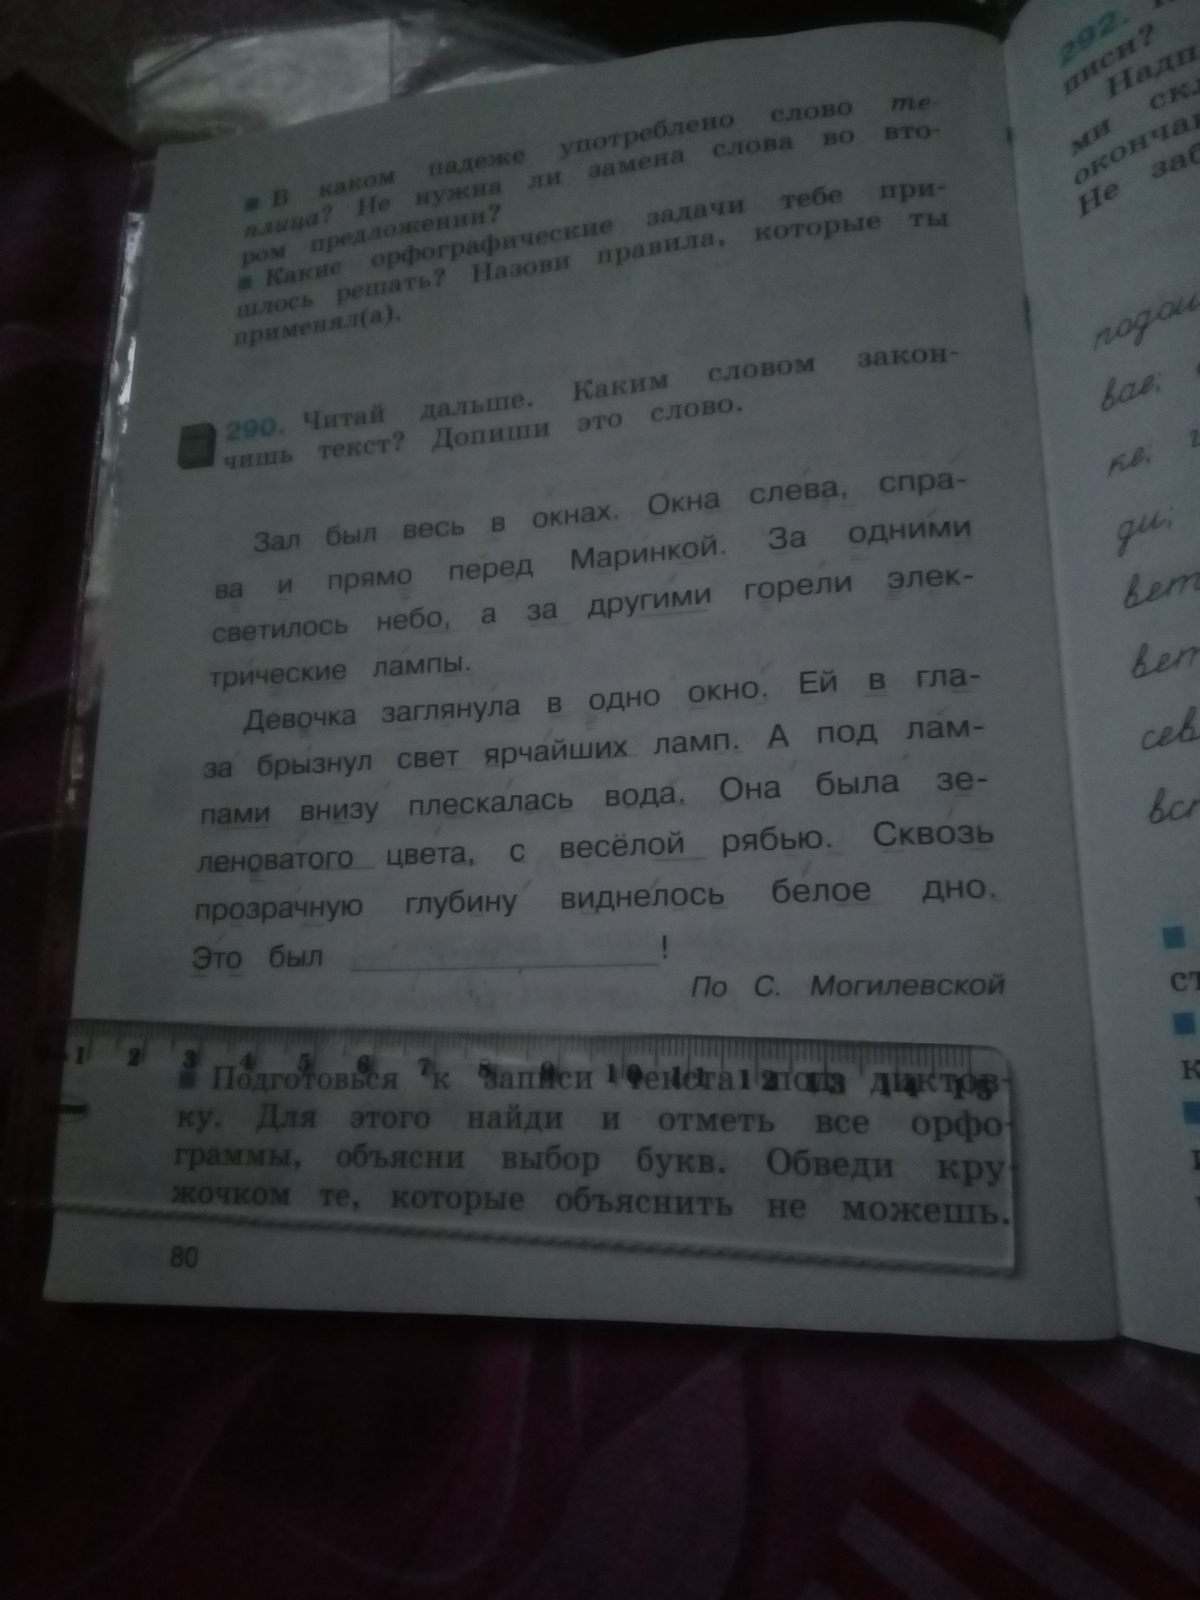 ■ В каком падеже употреблено слово те-
плица? Не нужна ли замена слова во вто-
ром предложении?
■ Какие орфографические задачи тебе при-
шлось решать? Назови правила, которые ты
применял(а).
290. Читай дальше. Каким словом закон-
чишь текст? Допиши это слово.
Зал был весь в окнах. Окна слева, спра-
ва и прямо перед Маринкой. За одними
светилось небо, а за другими горели элек-
трические лампы.
Девочка заглянула в одно окно. Ей в гла-
за брызнул свет ярчайших ламп. А под лам-
пами внизу плескалась вода. Она была зе-
леноватого цвета, с весёлой рябью. Сквозь
прозрачную глубину виднелось белое дно.
Это был !
По С. Могилевской
1 2 3 4 5 6 7 8 9 10 11 12 13 14 15
■ Подготовься к записи текста под диктов-
ку. Для этого найди и отметь все орфо-
граммы, объясни выбор букв. Обведи кру-
жочком те, которые объяснить не можешь.
80
292.
писи?
Надп
ми скл
окончан
Не заб
подош
вае;
ке;
ди;
вет
вет
сев
вс
■
ст
■
к
■